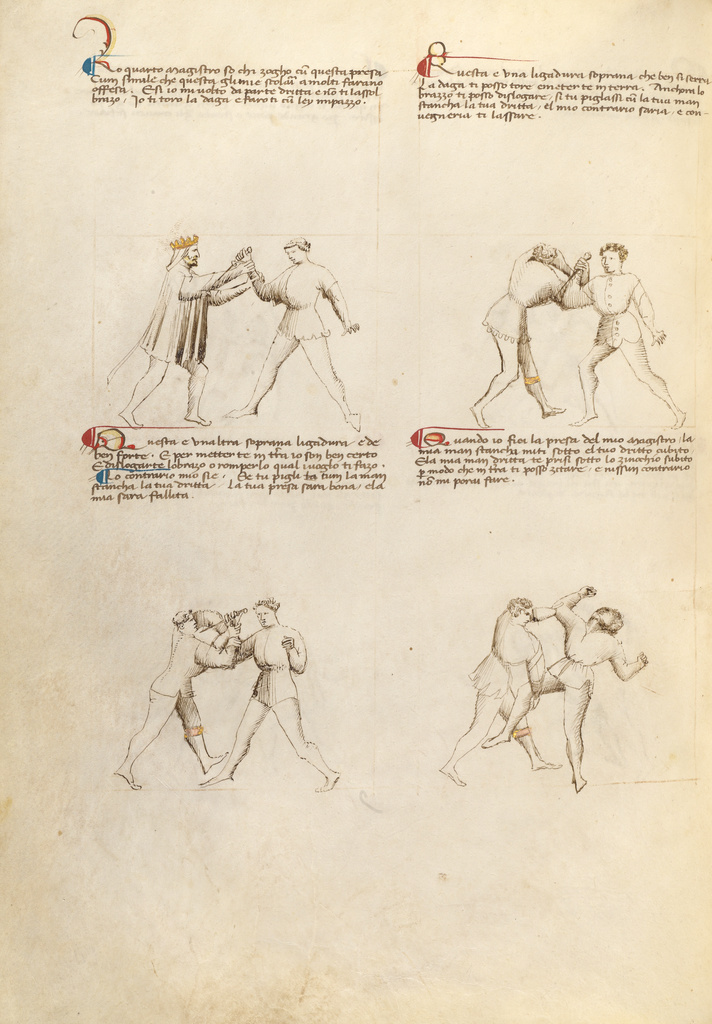 Lo quarto magistro so chi zogho cum questa presa
Cum simile che questa gli miei scolari a molti farano
offesa. E si io mi volto da parte dritta e non ti lasso 'l
brazo, Io ti toro la daga e faroti cum ley impazo.
Questa e una ligadura soprana che ben si serra
La daga ti posso tore e meterte in terra. Anchora lo
brazzo ti posso dislogare, si tu piglassi cum la tua man
stancha la tua dritta, el mio contrario saria, e con-
vegneria ti lassare.
Questa e un altra soprana ligadura e de
ben forte. E per metter te in terra io son ben certo
E dislogarte lo brazo o romperlo qual i' voglo ti fazo.
Lo contrario mio sie, Se tu pigli cum la man
stancha la tua dritta, La tua presa sara bona, e la
mia sara fallita.
Quando io fici la presa del mio magistro, la
mia man stancha miti sotto el tuo dritto cubito
E la mia man dritta te prisi sotto lo zinochio subito
per modo che in terra ti posso zitare, e nissun contrario
non mi porai fare.